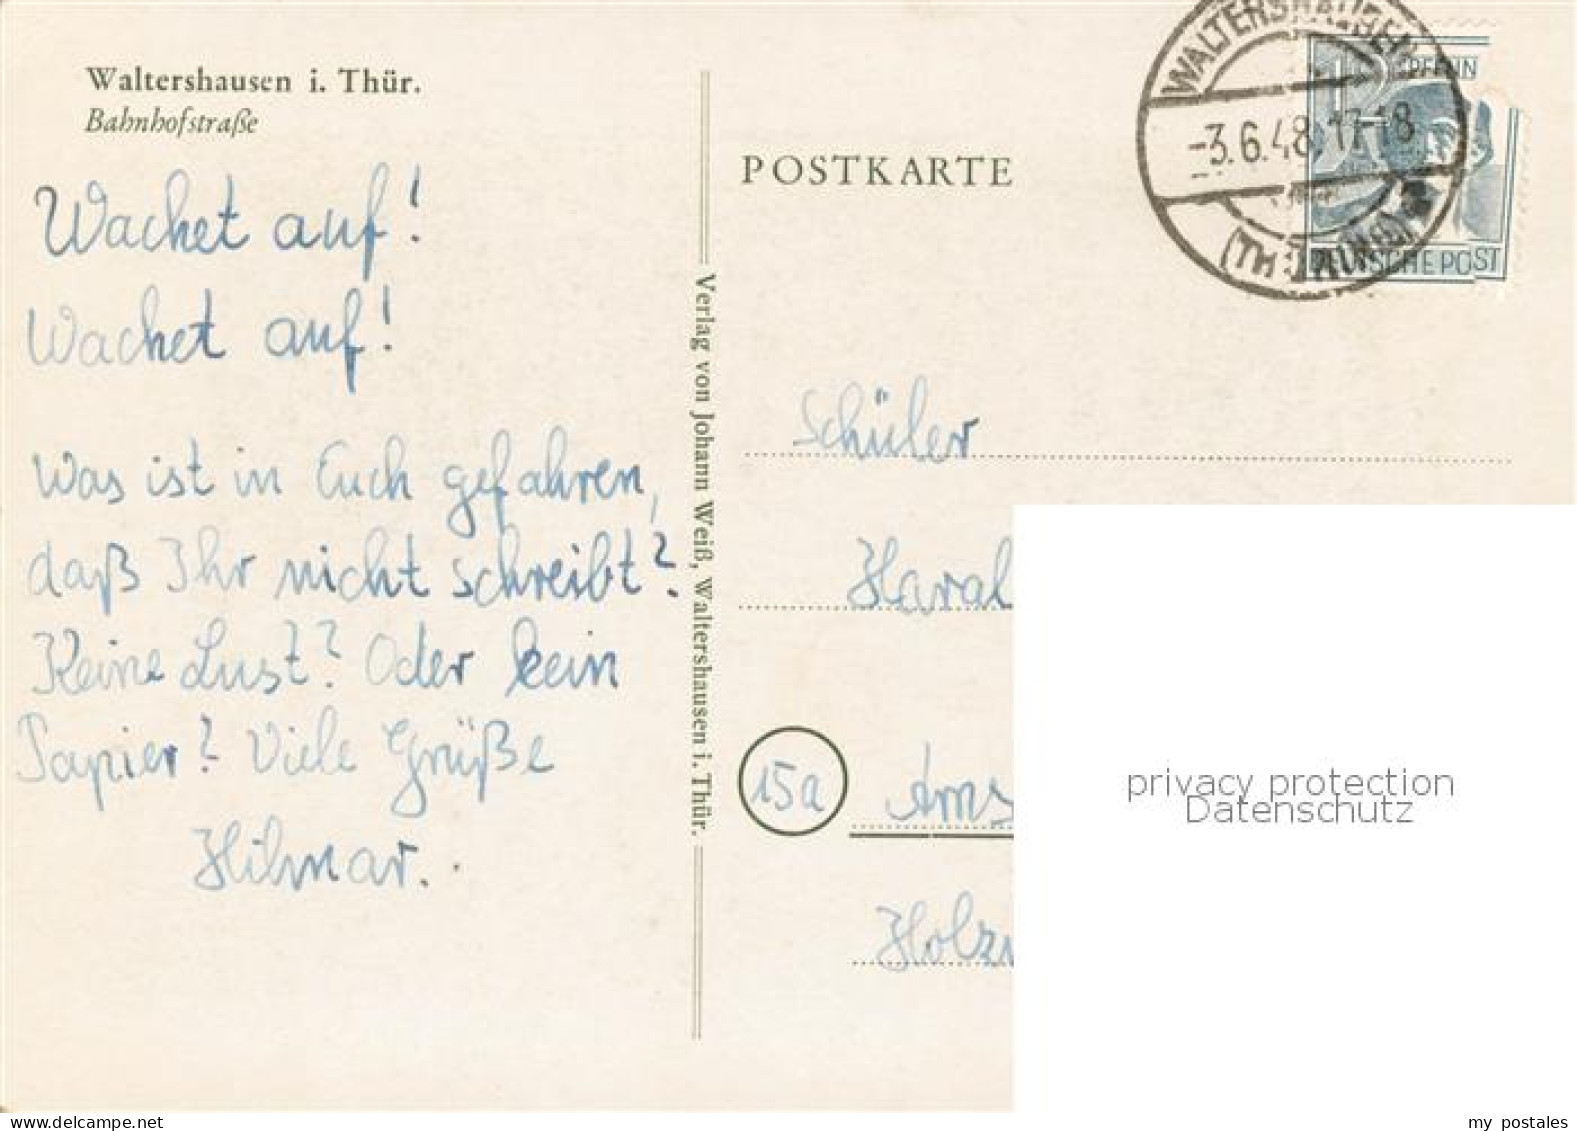 Waltershausen i. Thür.
Bahnhofstraße
Wachet auf!
Wachet auf!
Was ist in Euch gefahren,
daß Ihr nicht schreibt?
Keine Lust? Oder kein
Papier? Viele Grüße
Hilmar.
Verlag von Johann Weiß, Waltershausen i. Thür.
POSTKARTE
WALTERSHAUSEN
-3.6.48.17-18
(THÜRING)
12 PFENNIG
DEUTSCHE POST
Schüler
Haral
15a
Arns
Holz
privacy protection
Datenschutz
my postales